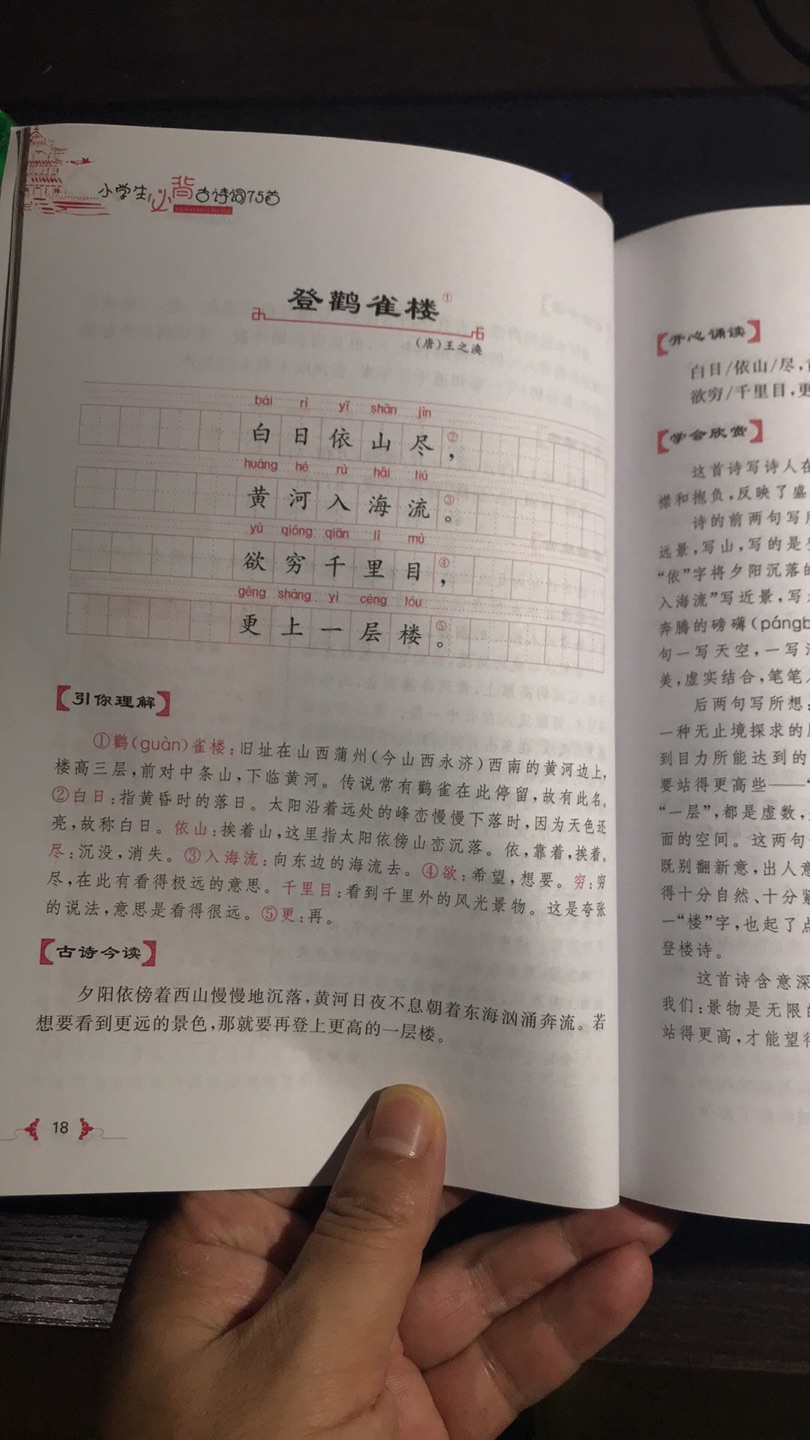 小学生必背古诗词75首
登鹳雀楼①
(唐)王之涣
bái rì yī shān jìn
白日依山尽②,
huáng hé rù hǎi liú
黄河入海流③。
yù qióng qiān lǐ mù
欲穷千里目④,
gèng shàng yì céng lóu
更上一层楼⑤。
【引你理解】
①鹳(guàn)雀楼:旧址在山西蒲州(今山西永济)西南的黄河边上,
楼高三层,前对中条山,下临黄河。传说常有鹳雀在此停留,故有此名。
②白日:指黄昏时的落日。太阳沿着远处的峰峦慢慢下落时,因为天色还
亮,故称白日。依山:挨着山,这里指太阳依傍山峦沉落。依,靠着,挨着。
尽:沉没,消失。③入海流:向东边的海流去。④欲:希望,想要。穷:穷
尽,在此有看得极远的意思。千里目:看到千里外的风光景物。这是夸张
的说法,意思是看得很远。⑤更:再。
【古诗今读】
夕阳依傍着西山慢慢地沉落,黄河日夜不息朝着东海汹涌奔流。若
想要看到更远的景色,那就要再登上更高的一层楼。
18
【开心诵读】
白日/依山/尽,
欲穷/千里目,更
【学会欣赏】
这首诗写诗人在
襟和抱负,反映了盛
诗的前两句写所
远景,写山,写的是
“依”字将夕阳沉落的
入海流”写近景,写
奔腾的磅礴(pángb
句一写天空,一写
美,虚实结合,笔笔
后两句写所想
一种无止境探求的
到目力所能达到的
要站得更高些——“
“一层”,都是虚数,
面的空间。这两句
既别翻新意,出人意
得十分自然、十分紧
一“楼”字,也起了点
登楼诗。
这首诗含意深
我们:景物是无限的
站得更高,才能望得